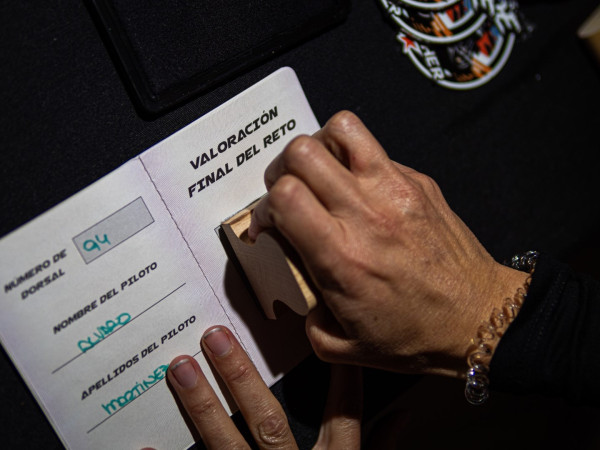 NÚMERO DE
DORSAL
94
NOMBRE DEL PILOTO
ALVARO
APELLIDOS DEL PILOTO
MARTÍNE
VALORACIÓN
FINAL DEL RETO